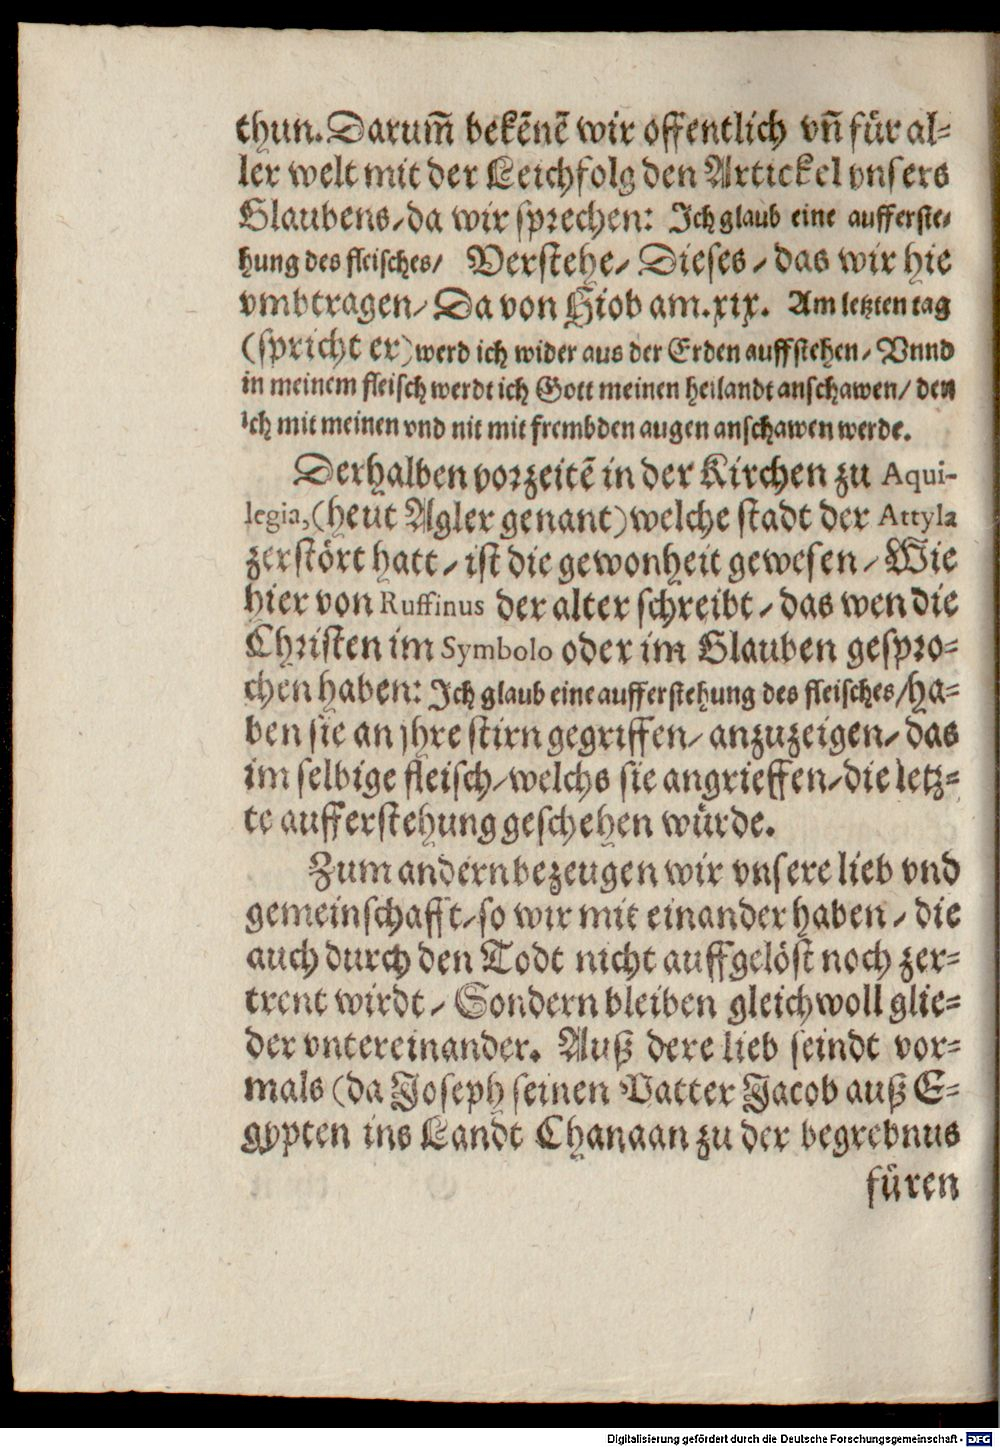 thun. Darum̃ bekẽnẽ wir offentlich vñ für al-
ler welt mit der Leichfolg den Artickel vnsers
Glaubens/ da wir sprechen: Ich glaub eine aufferste/
hung des fleisches/ Verstehe/ Dieses/ das wir hie
vmbtragen/ Da von Hiob am. xix. Am letzten tag
(spricht er) werd ich wider aus der Erden auffstehen/ Vnnd
in meinem fleisch werdt ich Gott meinen heilandt anschawen/ den
ich mit meinen vnd nit mit frembden augen anschawen werde.
Derhalben vorzeitẽ in der Kirchen zu Aqui-
legia, (heut Agler genant) welche stadt der Attyla
zerstört hatt/ ist die gewonheit gewesen/ Wie
hier von Ruffinus der alter schreibt/ das wen die
Christen im Symbolo oder im Glauben gespro-
chen haben: Ich glaub eine aufferstehung des fleisches/ ha-
ben sie an jhre stirn gegriffen/ anzuzeigen/ das
im selbige fleisch/ welchs sie angrieffen/ die letz-
te aufferstehung geschehen würde.
Zum andern bezeugen wir vnsere lieb vnd
gemeinschafft/ so wir mit einander haben/ die
auch durch den Todt nicht auffgelöst noch zer-
trent wirdt/ Sondern bleiben gleichwoll glie-
der vntereinander. Auß dere lieb seindt vor-
mals (da Joseph seinen Vatter Jacob auß E-
gypten ins Landt Chanaan zu der begrebnus
füren
Digitalisierung gefördert durch die Deutsche Forschungsgemeinschaft - DFG